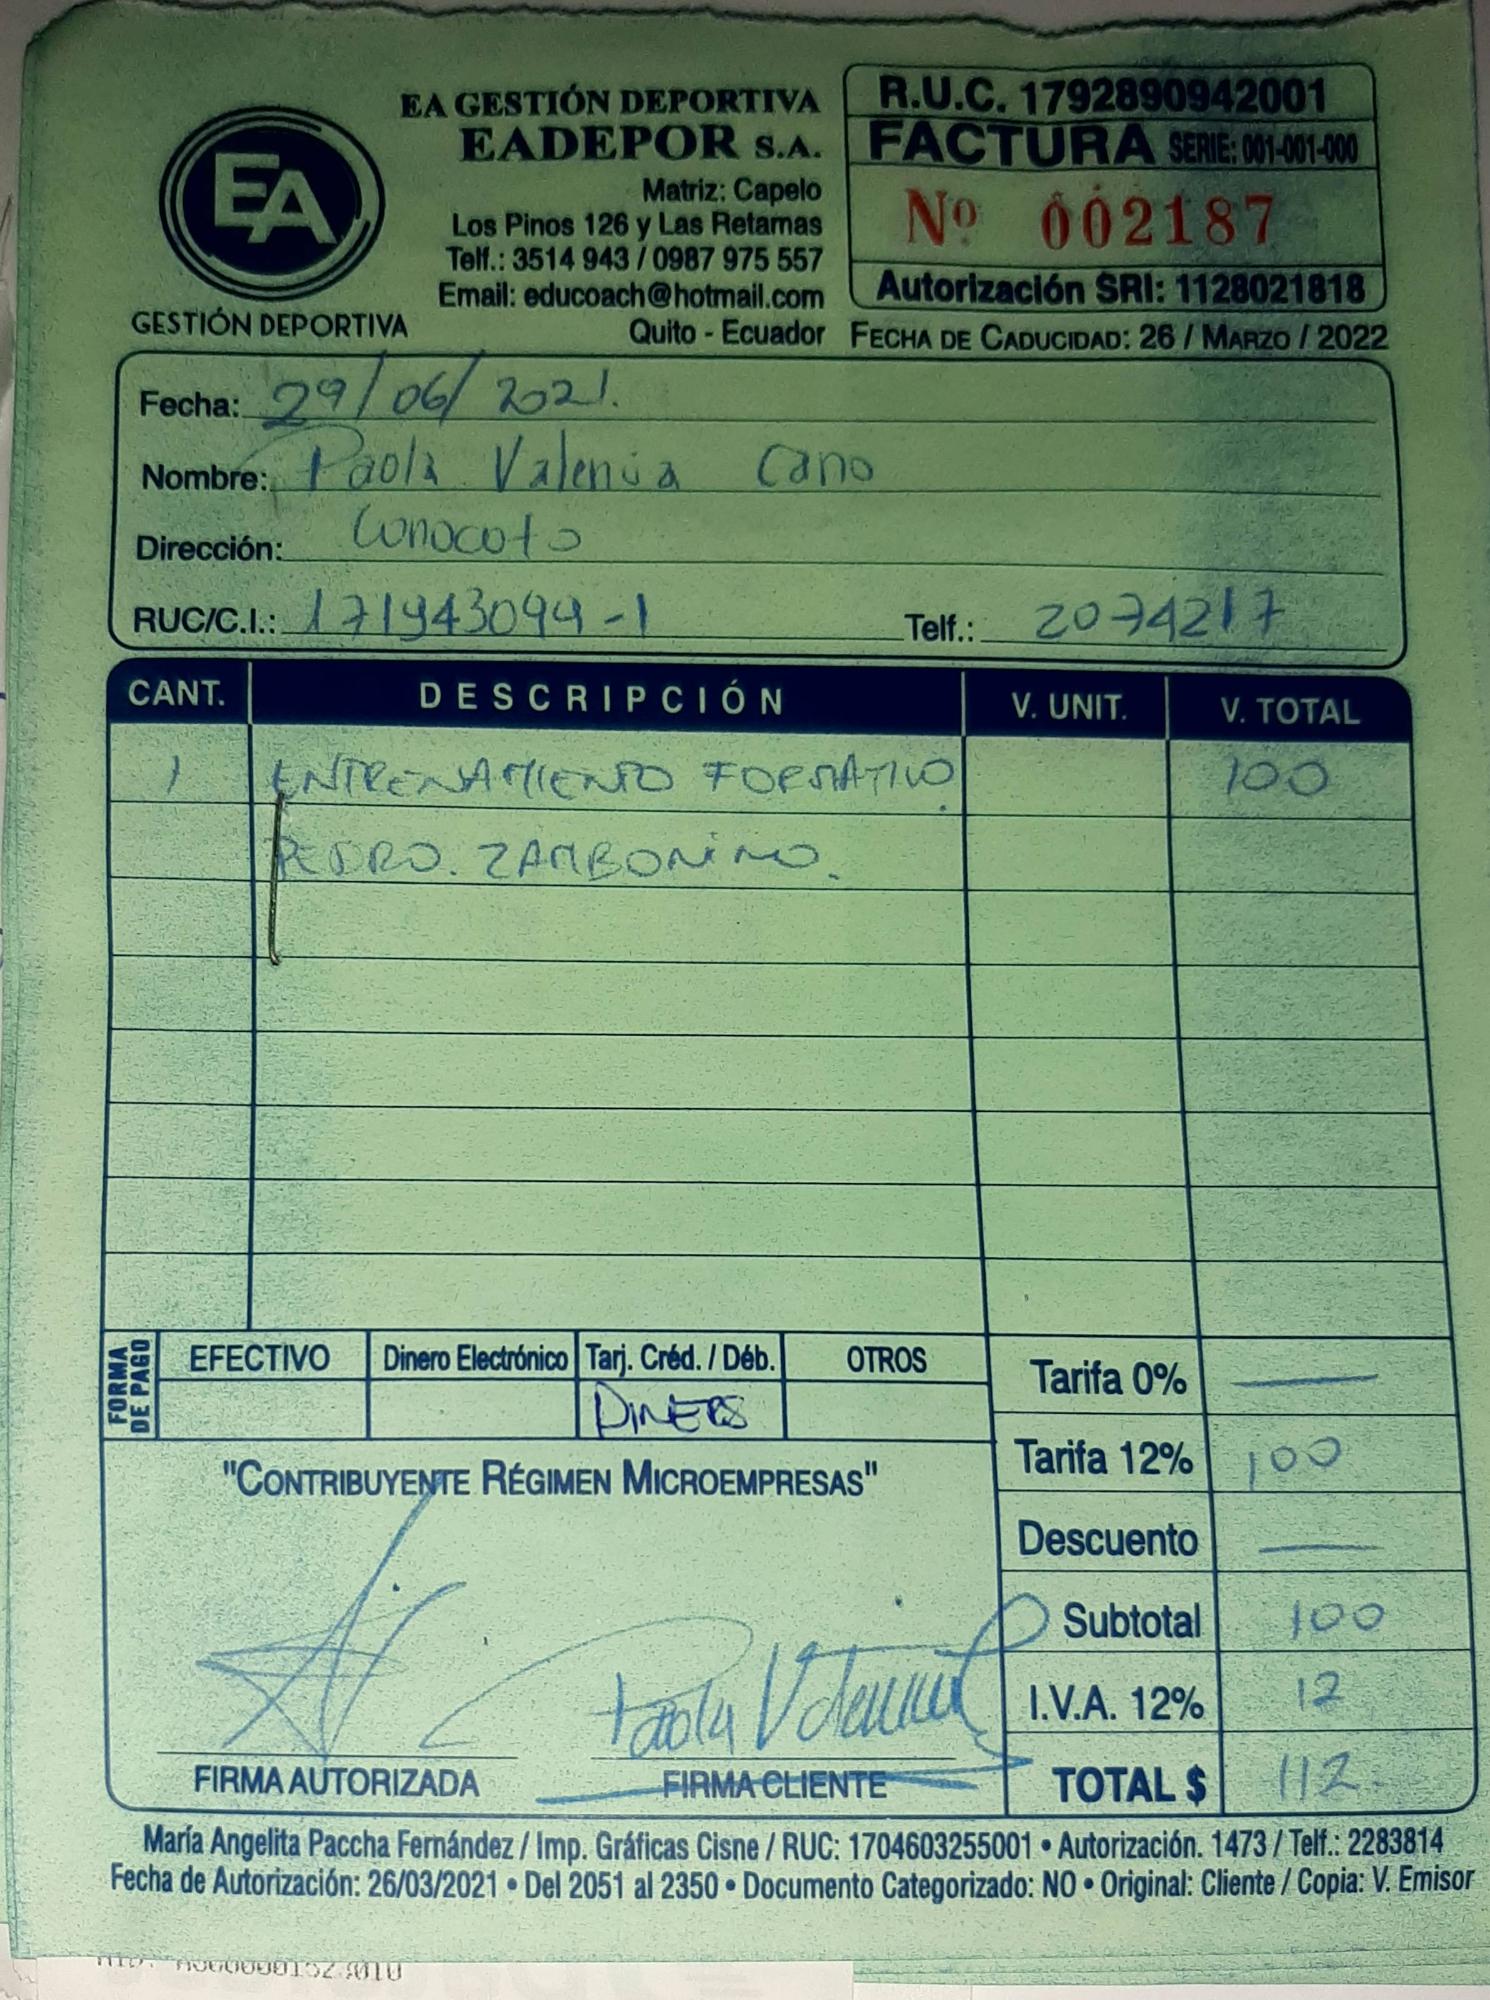 EA
GESTIÓN DEPORTIVA
EA GESTIÓN DEPORTIVA
EADEPOR S.A.
Matriz: Capelo
Los Pinos 126 y Las Retamas
Telf.: 3514 943 / 0987 975 557
Email: educoach@hotmail.com
Quito - Ecuador
R.U.C. 1792890942001
FACTURA SERIE: 001-001-000
Nº 002187
Autorización SRI: 1128021818
FECHA DE CADUCIDAD: 26 / MARZO / 2022
Fecha: 29/06/2021.
Nombre: Paola Valencia Cano
Dirección: Conocoto
RUC/C.I.: 171943094-1 Telf.: 2074217
CANT. DESCRIPCIÓN V. UNIT. V. TOTAL
1 ENTRENAMIENTO FORMATIVO 100
PEDRO. ZAMBONINO.
FORMA DE PAGO
EFECTIVO Dinero Electrónico Tarj. Créd. / Déb. OTROS
DINERS
Tarifa 0% —
Tarifa 12% 100
Descuento —
Subtotal 100
I.V.A. 12% 12
TOTAL $ 112.
"CONTRIBUYENTE RÉGIMEN MICROEMPRESAS"
Paola Valencia
FIRMA AUTORIZADA FIRMA CLIENTE
María Angelita Paccha Fernández / Imp. Gráficas Cisne / RUC: 1704603255001 • Autorización. 1473 / Telf.: 2283814
Fecha de Autorización: 26/03/2021 • Del 2051 al 2350 • Documento Categorizado: NO • Original: Cliente / Copia: V. Emisor